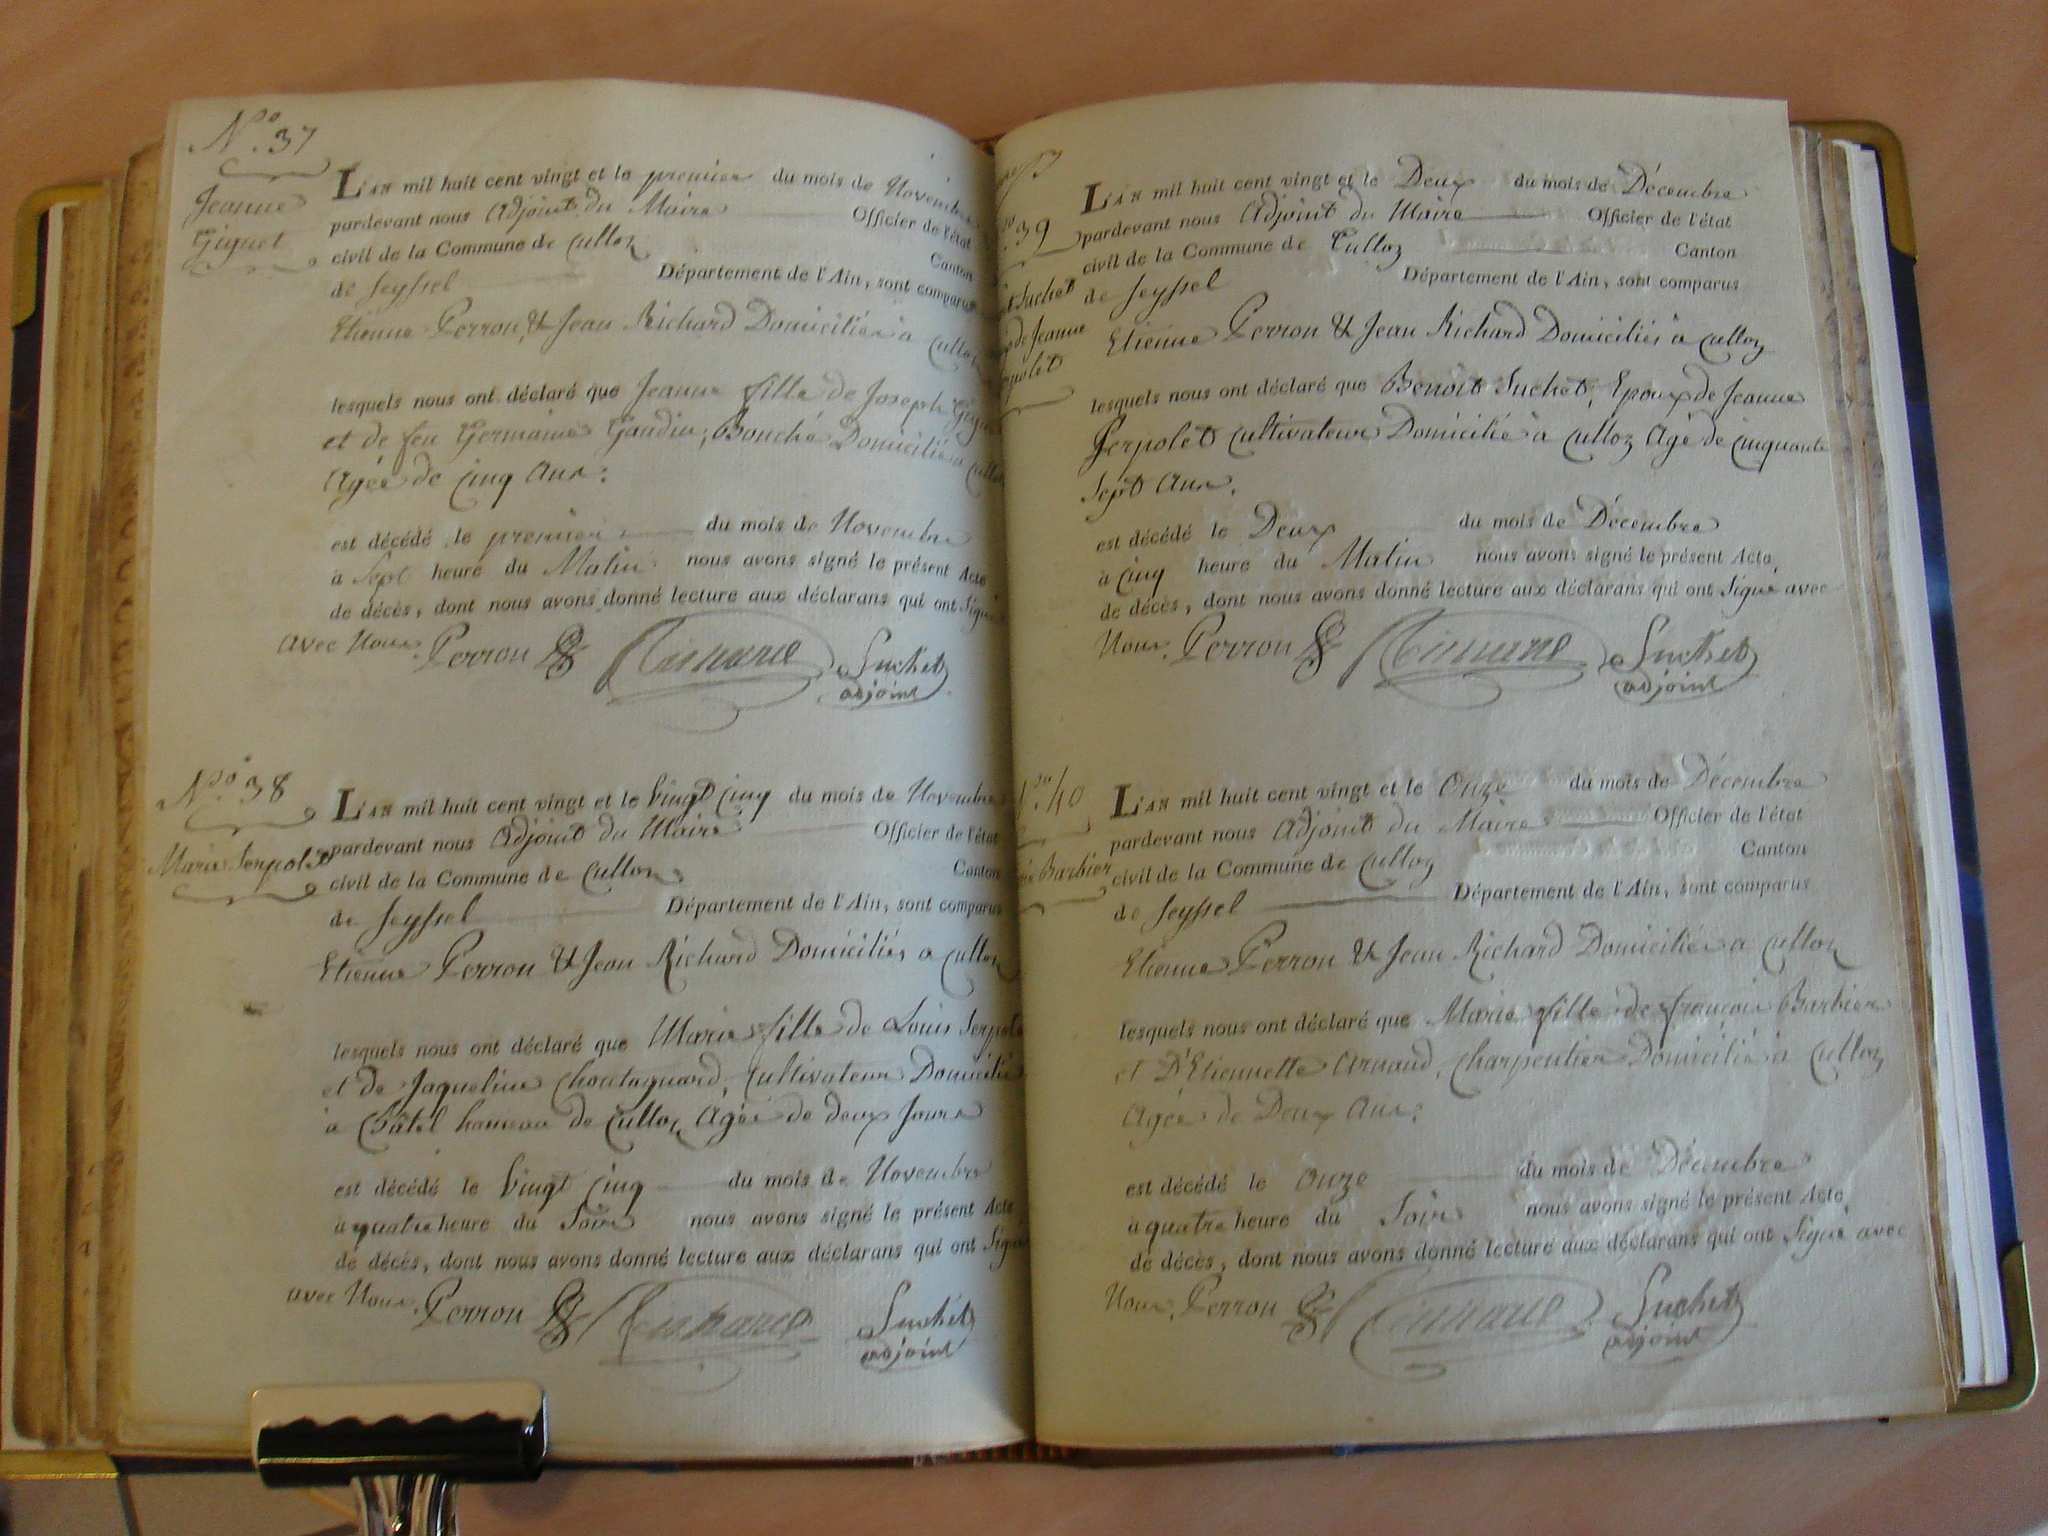 N.º 37
Jeanne
Giguet
L'AN mil huit cent vingt et le premier du mois de Novembre
pardevant nous Adjoint du Maire Officier de l'état
civil de la Commune de Culloz Canton
de Seyssel Département de l'Ain, sont comparus
Etienne Perron, & Jean Richard Domiciliés à Culloz
lesquels nous ont déclaré que Jeanne fille de Joseph
et de feu Germaine Gaudin, Bouché Domicilié à Culloz
Agée de Cinq Ans:
est décédé le premier du mois de Novembre
à Sept heure du Matin nous avons signé le présent Acte
de décès, dont nous avons donné lecture aux déclarans qui ont Signé
avec Nous. Perron Suchet
adjoint
N.º 38
Marie Serpolet
L'AN mil huit cent vingt et le Vingt Cinq du mois de Novembre
pardevant nous Adjoint du Maire Officier de l'état
civil de la Commune de Culloz Canton
de Seyssel Département de l'Ain, sont comparus
Etienne Perron & Jean Richard Domiciliés a Culloz
lesquels nous ont déclaré que Marie fille de Louis
et de Jaqueline Cultivateur Domicilié
à Châtel hameau de Culloz Agée de deux Jours
est décédé le Vingt Cinq du mois de Novembre
à quatre heure du Soir nous avons signé le présent Acte
de décès, dont nous avons donné lecture aux déclarans qui ont Signé
avec Nous. Perron Suchet
adjoint
39
Suchet
de Jeanne
L'AN mil huit cent vingt et le Deux du mois de Décembre
pardevant nous Adjoint du Maire Officier de l'état
civil de la Commune de Culloz Canton
de Seyssel Département de l'Ain, sont comparus
Etienne Perron & Jean Richard Domiciliés à Culloz
lesquels nous ont déclaré que Benoit Suchet, Epoux de Jeanne
Serpolet Cultivateur Domicilié à Culloz Agé de Cinquante
Sept Ans.
est décédé le Deux du mois de Décembre
à Cinq heure du Matin nous avons signé le présent Acte
de décès, dont nous avons donné lecture aux déclarans qui ont Signé avec
Nous. Perron Suchet
adjoint
40
Barbier
L'AN mil huit cent vingt et le Onze du mois de Décembre
pardevant nous Adjoint du Maire Officier de l'état
civil de la Commune de Culloz Canton
de Seyssel Département de l'Ain, sont comparus
Etienne Perron & Jean Richard Domiciliés a Culloz
lesquels nous ont déclaré que Marie fille de françois Barbier
et D'Etiennette Arnaud, Charpentier Domicilié à Culloz
Agée de Deux Ans:
est décédé le Onze du mois de Décembre
à quatre heure du Soir nous avons signé le présent Acte
de décès, dont nous avons donné lecture aux déclarans qui ont Signé avec
Nous. Perron Suchet
adjoint